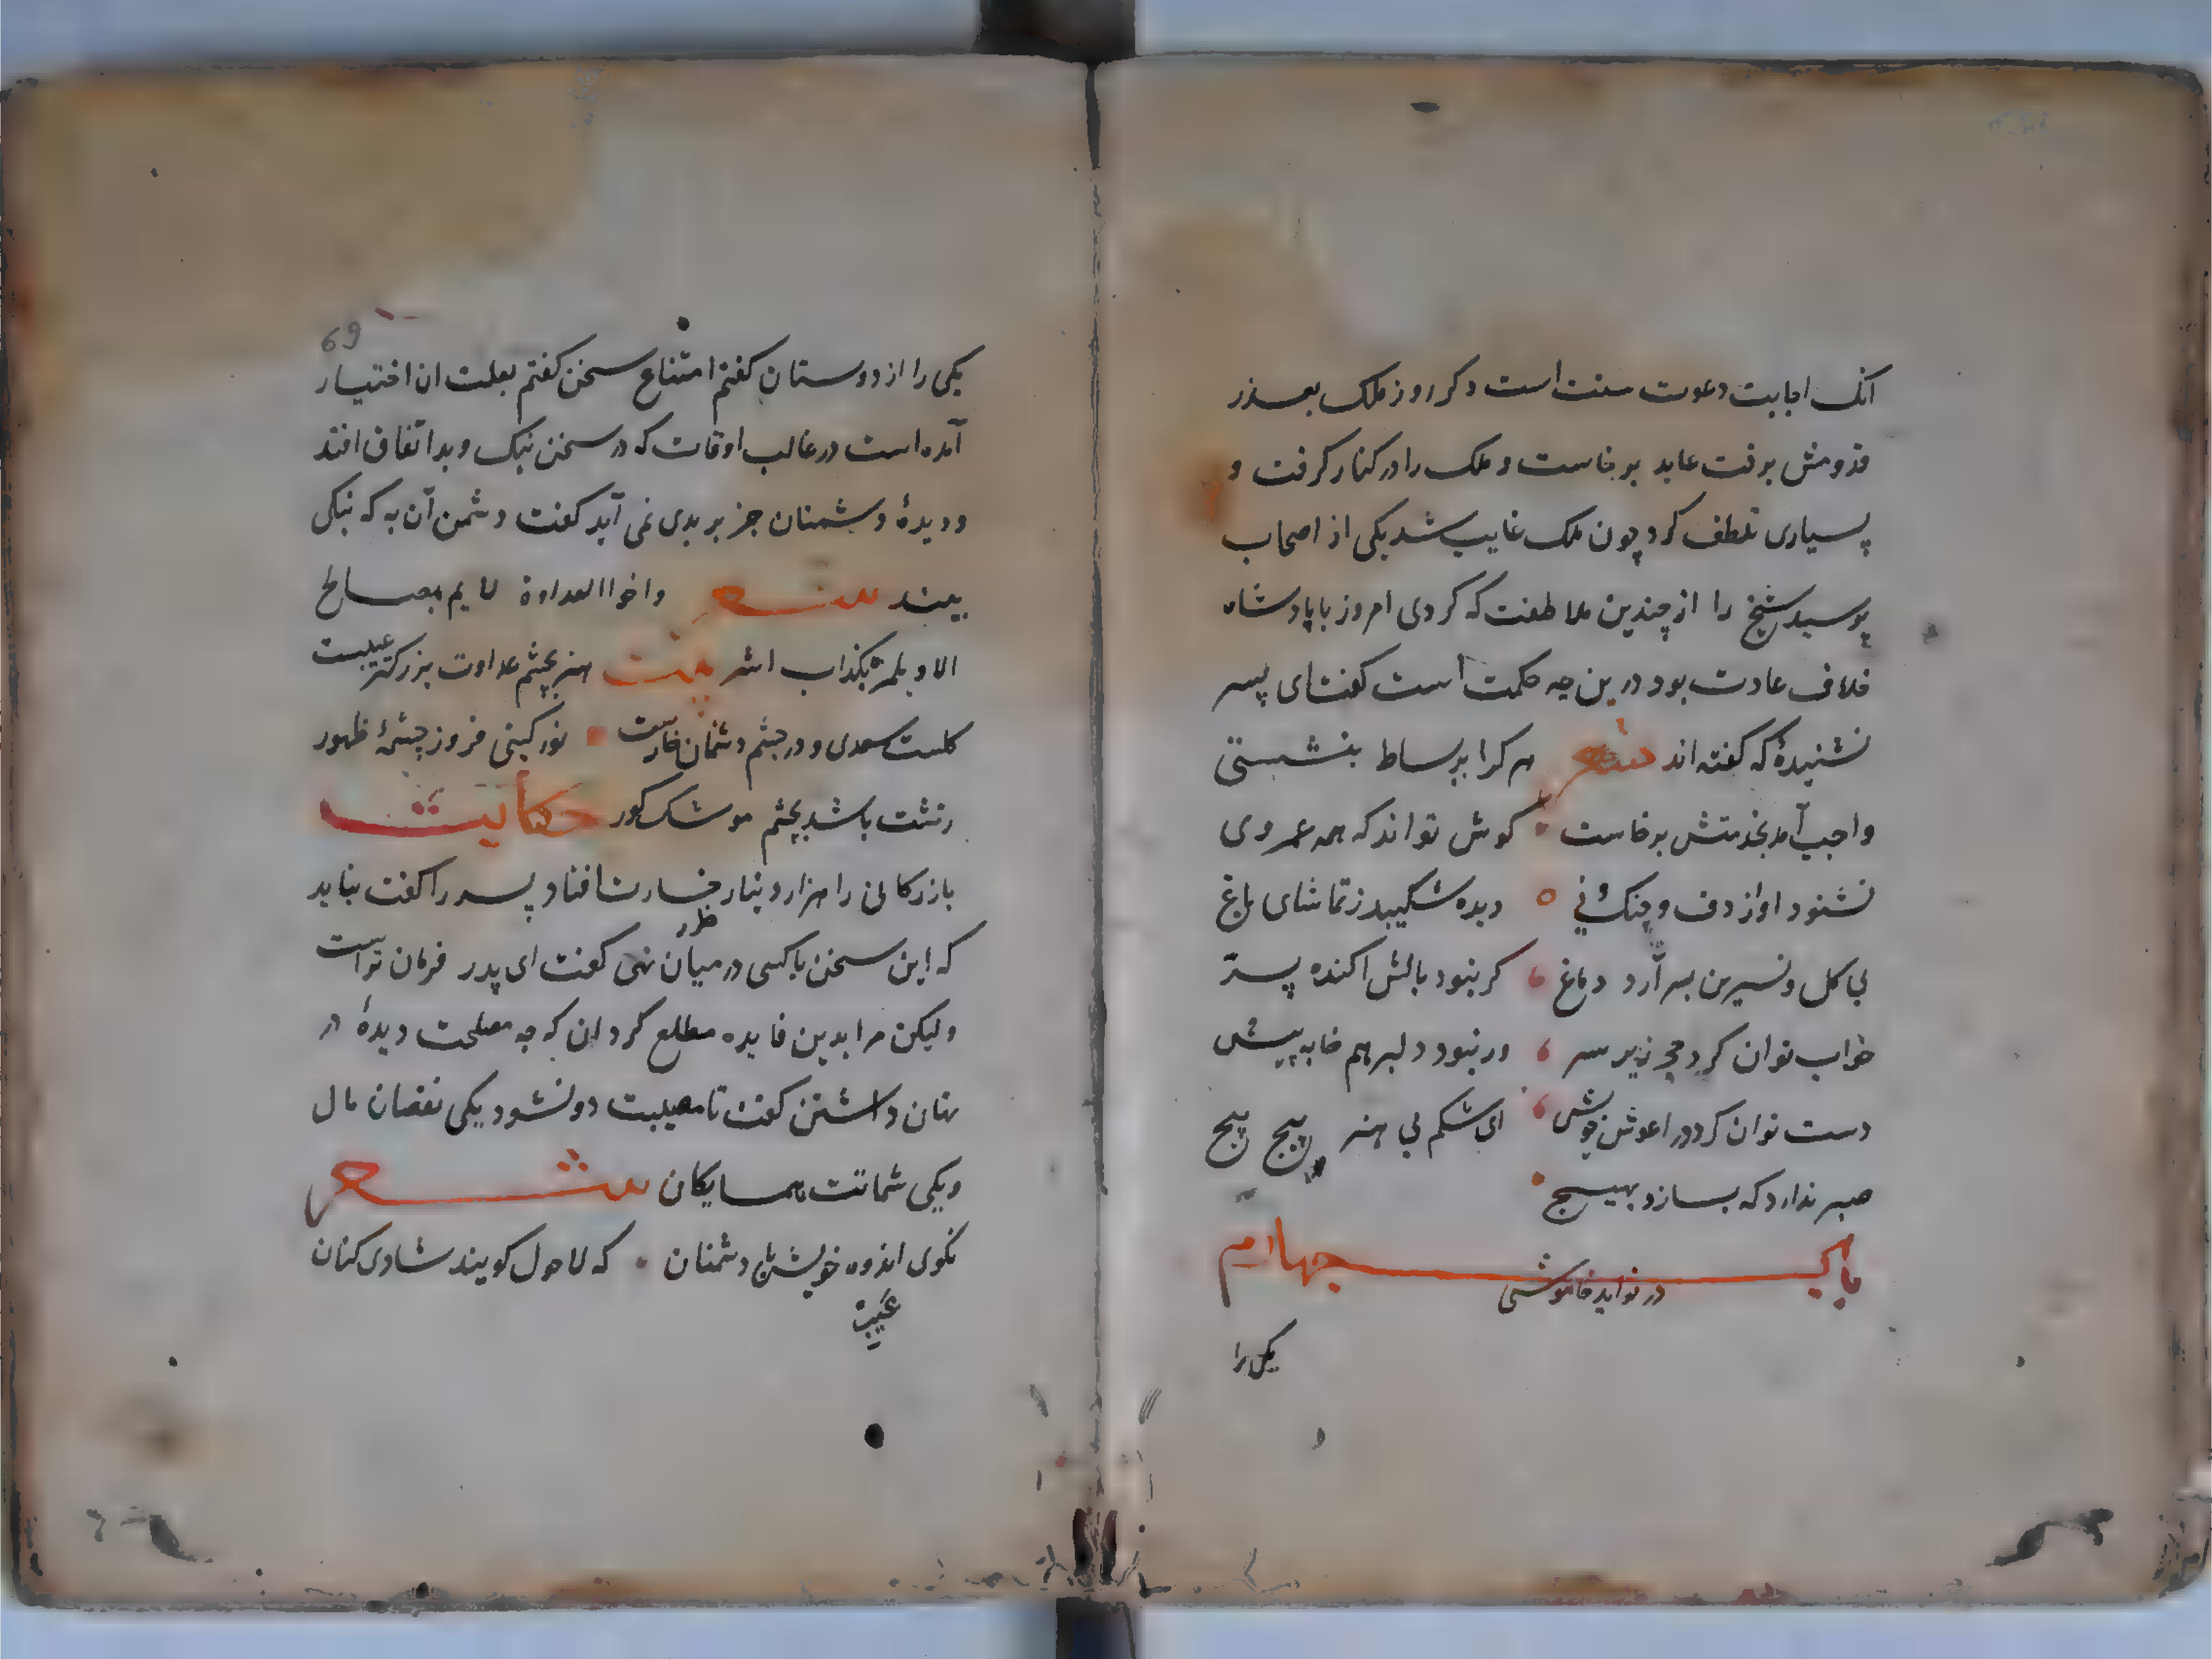 انک اجابت دعوت سنت است دکر روز ملک بعذر
قدومش برفت عابد برخاست و ملک را در کنار کرفت و
بسیاری تلطف کرد چون ملک غایب شد یکی از اصحاب
پرسید شیخ را از چندین ملاطفت که کردی امروز با پادشاه
خلاف عادت بود درین چه حکمت است کفت ای پسر
نشنیدهٔ که کفته اند شعر هر کرا بر بساط بنشستی
واجب آمد بخدمتش برخاست کوش تواند که همه عمر وی
نشنود اواز دف و چنک و نی دیده شکیبد ز تماشای باغ
بی کل و نسرین بسر آرد دماغ کر نبود بالش اکنده پر
خواب توان کرد حجر زیر سر ور نبود دلبر هم خابه پیش
دست توان کرد در اغوش خویش ای شکم بی هنر پیچ پیچ
صبر ندارد که بسازد بهیچ
باب چهارم
در فواید خاموشی
یکی را
69
یکی را از دوستان کفتم امتناع سخن کفتم بعلت ان اختیار
آمده است در غالب اوقات که در سخن نیک و بد اتفاق افتد
و دیدهٔ دشمنان جز بر بدی نمی آید کفت دشمن آن به که نیکی
بیند شعر واخوا العداوة لا یمر بصالح
الا ویلمزه بکذاب اشر بیت هنر بچشم عداوت بزرکتر عیبست
کلست سعدی و در چشم دشمنان خارست نور کیتی فروز چشمهٔ ظهور
زشت باشد بچشم موشک کور حکایت
بازرکانی را هزار دینار خسارت افتاد پسر را کفت نباید
که این سخن با کسی در میان نهی کفت ای پدر فرمان تراست
ولیکن مرا بدین فایده مطلع کردان که چه مصلحت دیدهٔ در
نهان داشتن کفت تا مصیبت دو نشود یکی نقصان مال
و یکی شماتت همسایکان شعر
مکوی اندوه خویش با دشمنان که لا حول کویند شادی کنان